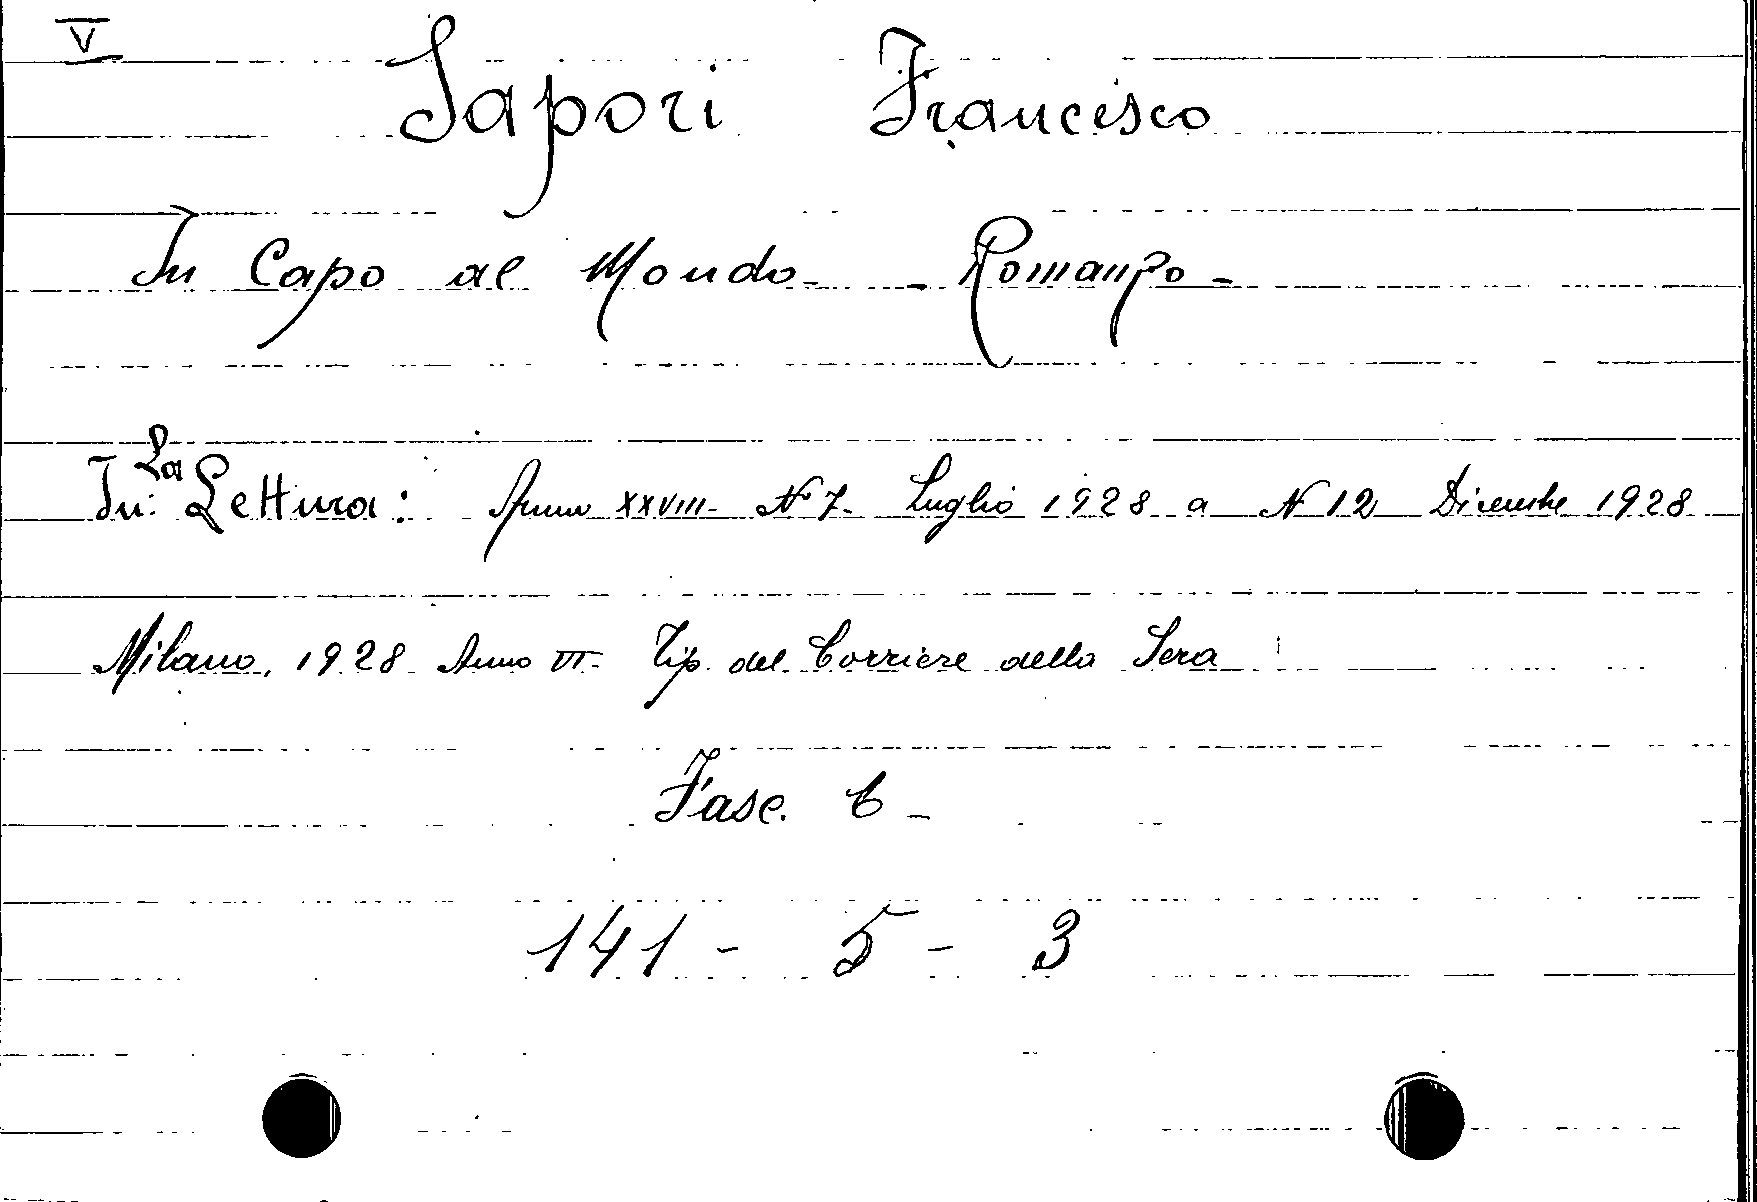 V
Sapori Francesco
In Capo al Mondo - - Romanzo -
In: La Lettura: Anno XXVIII - N° 7 - Luglio 1928 a N 12 Dicembre 1928
Milano, 1928 Anno VI - Tip. del Corriere della Sera
Fasc. 6 -
141 - 5 - 3